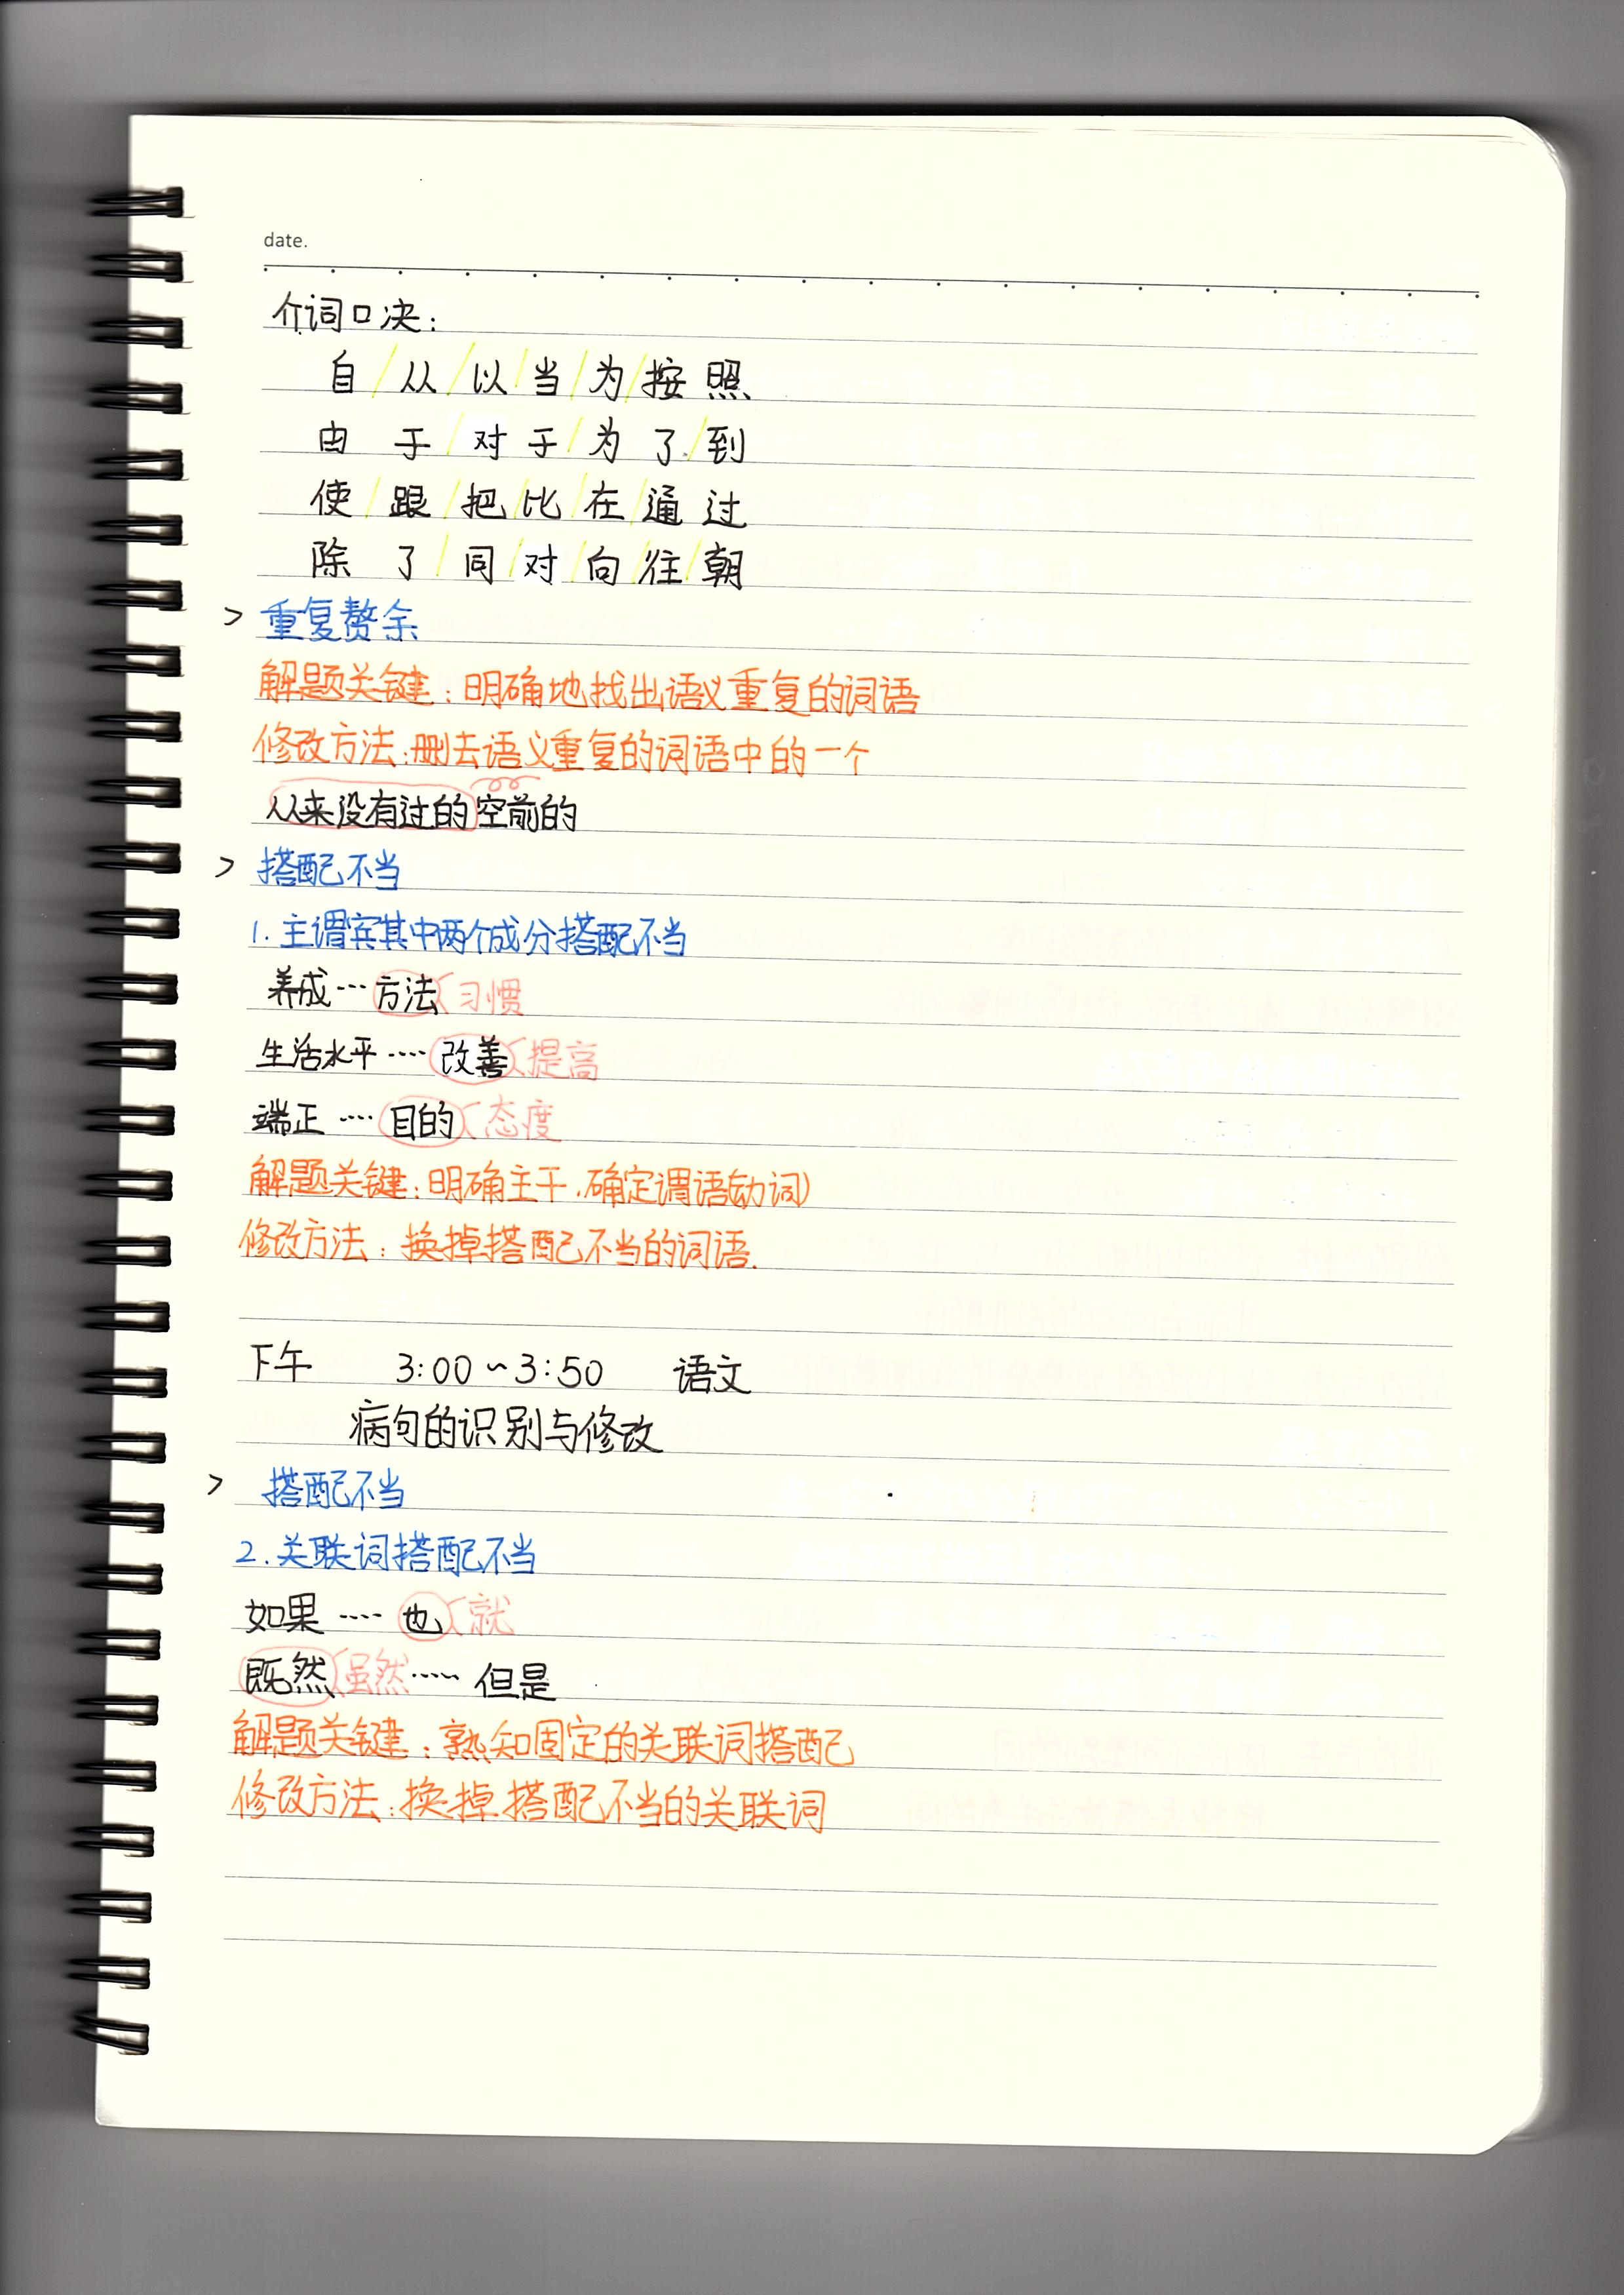 date.
介词口决：
自/从/以/当/为/按照
由于/对于/为了/到
使/跟/把/比/在/通过
除了/同/对/向/往/朝
> 重复赘余
解题关键：明确地找出语义重复的词语
修改方法：删去语义重复的词语中的一个
从来没有过的空前的
> 搭配不当
1. 主谓宾其中两个成分搭配不当
养成…方法 习惯
生活水平…. 改善 提高
端正…. 目的 态度
解题关键：明确主干，确定谓语(动词)
修改方法：换掉搭配不当的词语.
下午 3:00~3:50 语文
病句的识别与修改
> 搭配不当
2. 关联词搭配不当
如果…. 也 就
既然 虽然…… 但是
解题关键：熟知固定的关联词搭配
修改方法：换掉搭配不当的关联词